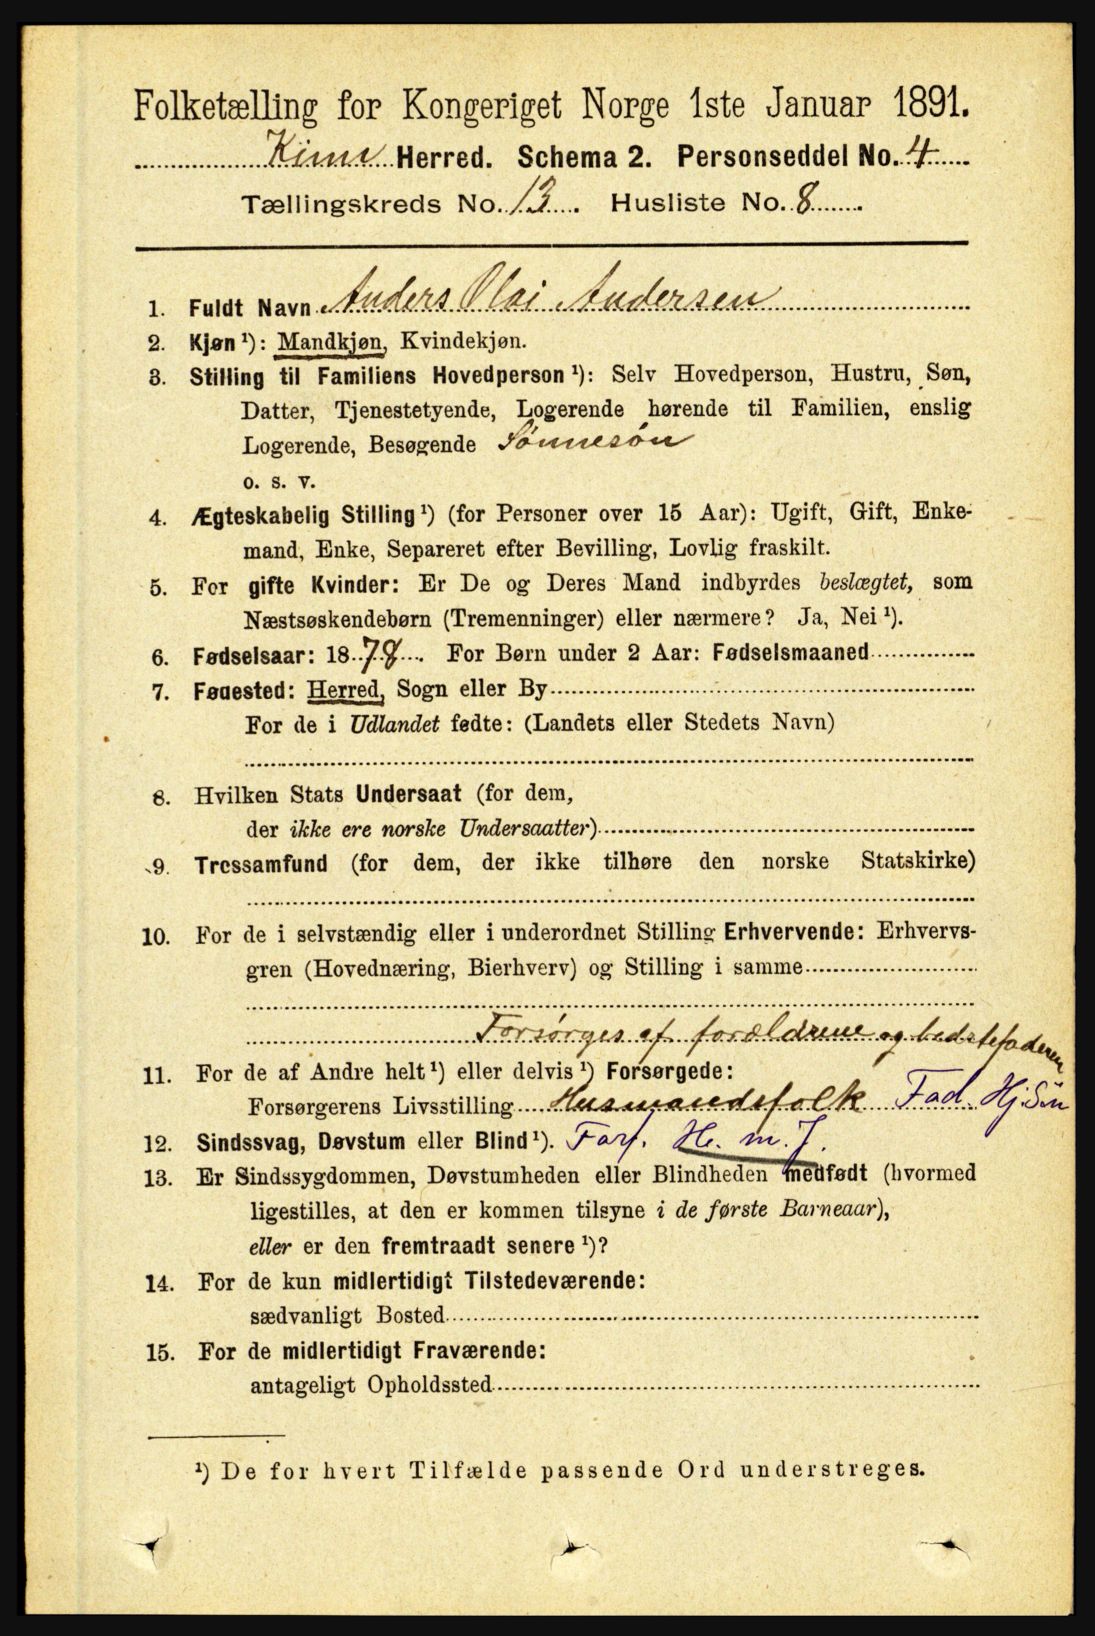 Folketælling for Kongeriget Norge 1ste Januar 1891.
Kinn Herred. Schema 2. Personseddel No. 4
Tællingskreds No. 13. Husliste No. 8
1. Fuldt Navn Anders Olai Andersen
2. Kjøn ¹): Mandkjøn, Kvindekjøn.
3. Stilling til Familiens Hovedperson ¹): Selv Hovedperson, Hustru, Søn,
Datter, Tjenestetyende, Logerende hørende til Familien, enslig
Logerende, Besøgende Sønnesøn
o. s. v.
4. Ægteskabelig Stilling ¹) (for Personer over 15 Aar): Ugift, Gift, Enke-
mand, Enke, Separeret efter Bevilling, Lovlig fraskilt.
5. For gifte Kvinder: Er De og Deres Mand indbyrdes beslægtet, som
Næstsøskendebørn (Tremenninger) eller nærmere? Ja, Nei ¹).
6. Fødselsaar: 1878. For Børn under 2 Aar: Fødselsmaaned
7. Føaested: Herred, Sogn eller By
For de i Udlandet fødte: (Landets eller Stedets Navn)
8. Hvilken Stats Undersaat (for dem,
der ikke ere norske Undersaatter)
9. Trossamfund (for dem, der ikke tilhøre den norske Statskirke)
10. For de i selvstændig eller i underordnet Stilling Erhvervende: Erhvervs-
gren (Hovednæring, Bierhverv) og Stilling i samme
Forsørges af forældrene og bedstefaderen
11. For de af Andre helt ¹) eller delvis ¹) Forsørgede:
Forsørgerens Livsstilling Husmandsfolk Fad. Hj. Søn
12. Sindssvag, Døvstum eller Blind ¹). Farf. He. m. J.
13. Er Sindssygdommen, Døvstumheden eller Blindheden medfødt (hvormed
ligestilles, at den er kommen tilsyne i de første Barneaar),
eller er den fremtraadt senere ¹)?
14. For de kun midlertidigt Tilstedeværende:
sædvanligt Bosted
15. For de midlertidigt Fraværende:
antageligt Opholdssted
¹) De for hvert Tilfælde passende Ord understreges.